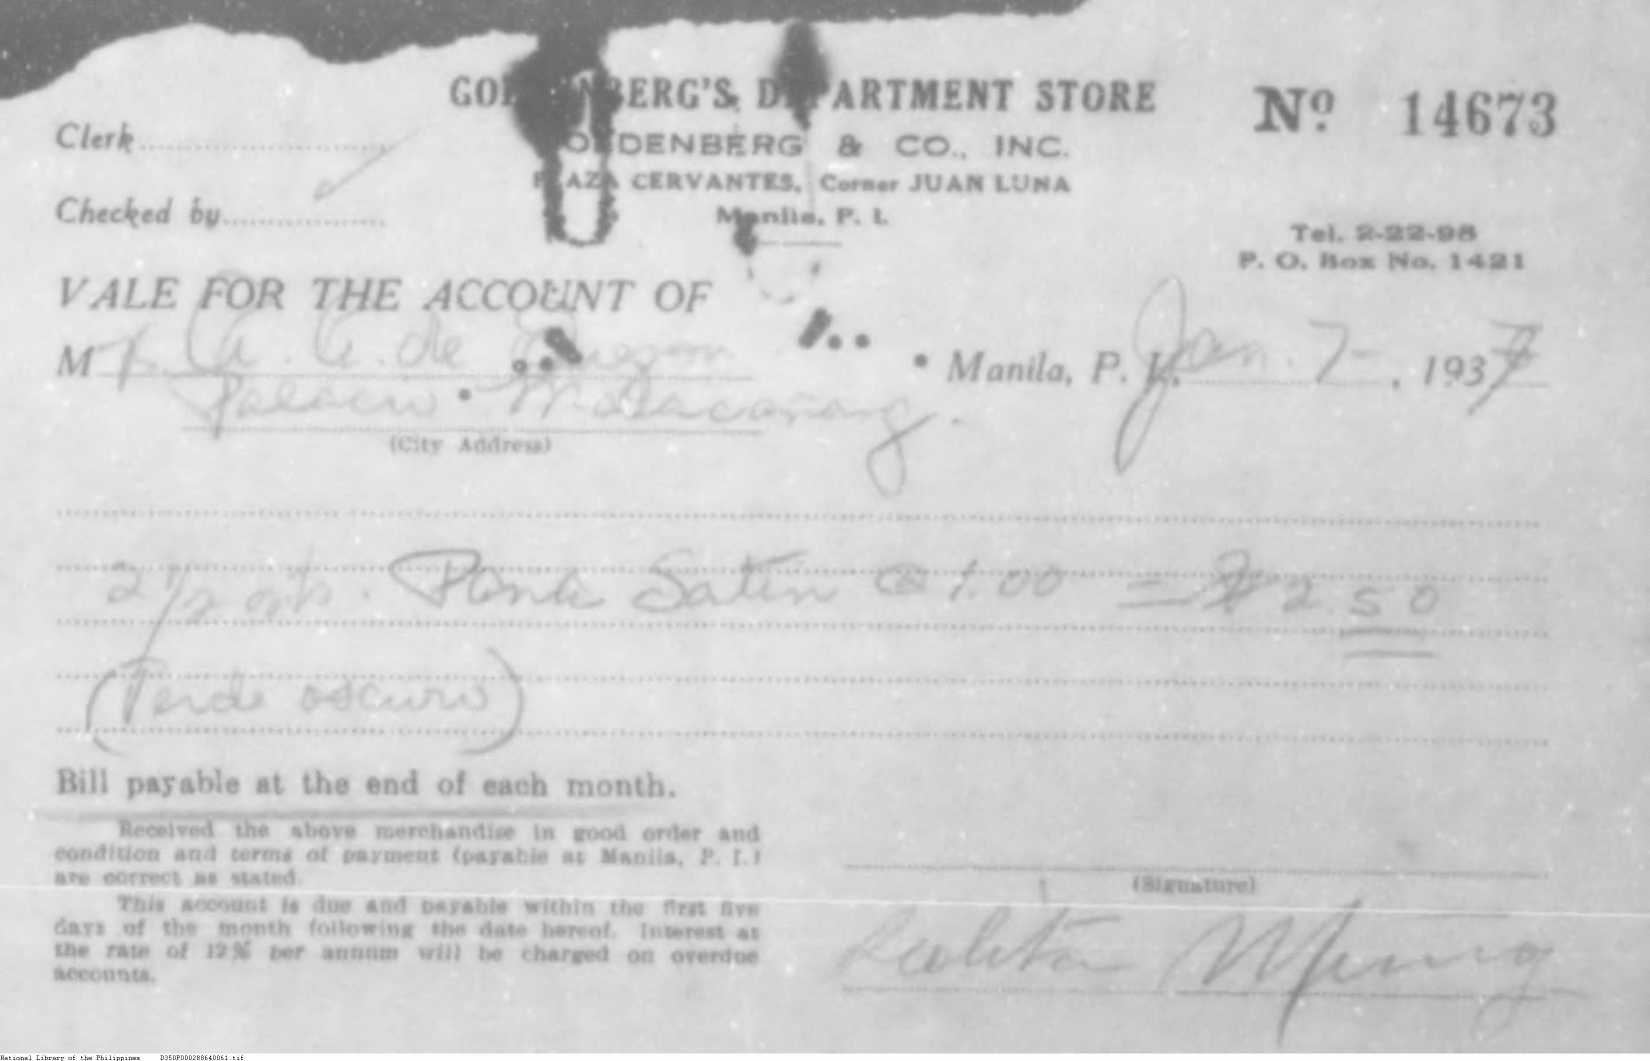 GOLDENBERG'S DEPARTMENT STORE
Nº 14673
Clerk
GOLDENBERG & CO., INC.
PLAZA CERVANTES, Corner JUAN LUNA
Checked by
Manila, P. I.
Tel. 2-22-98
P. O. Box No. 1421
VALE FOR THE ACCOUNT OF
M A. A. de Quezon
Manila, P. I., Jan. 7, 1937
Palacio Malacañang.
(City Address)
2 1/2 yds. Pank Satin @ 1.00 = ₱2.50
(Verde oscuro)
Bill payable at the end of each month.
Received the above merchandise in good order and
condition and terms of payment (payable at Manila, P. I.)
are correct as stated.
(Signature)
This account is due and payable within the first five
days of the month following the date hereof. Interest at
the rate of 12% per annum will be charged on overdue
accounts.
National Library of the Philippines D350P000288640061.tif